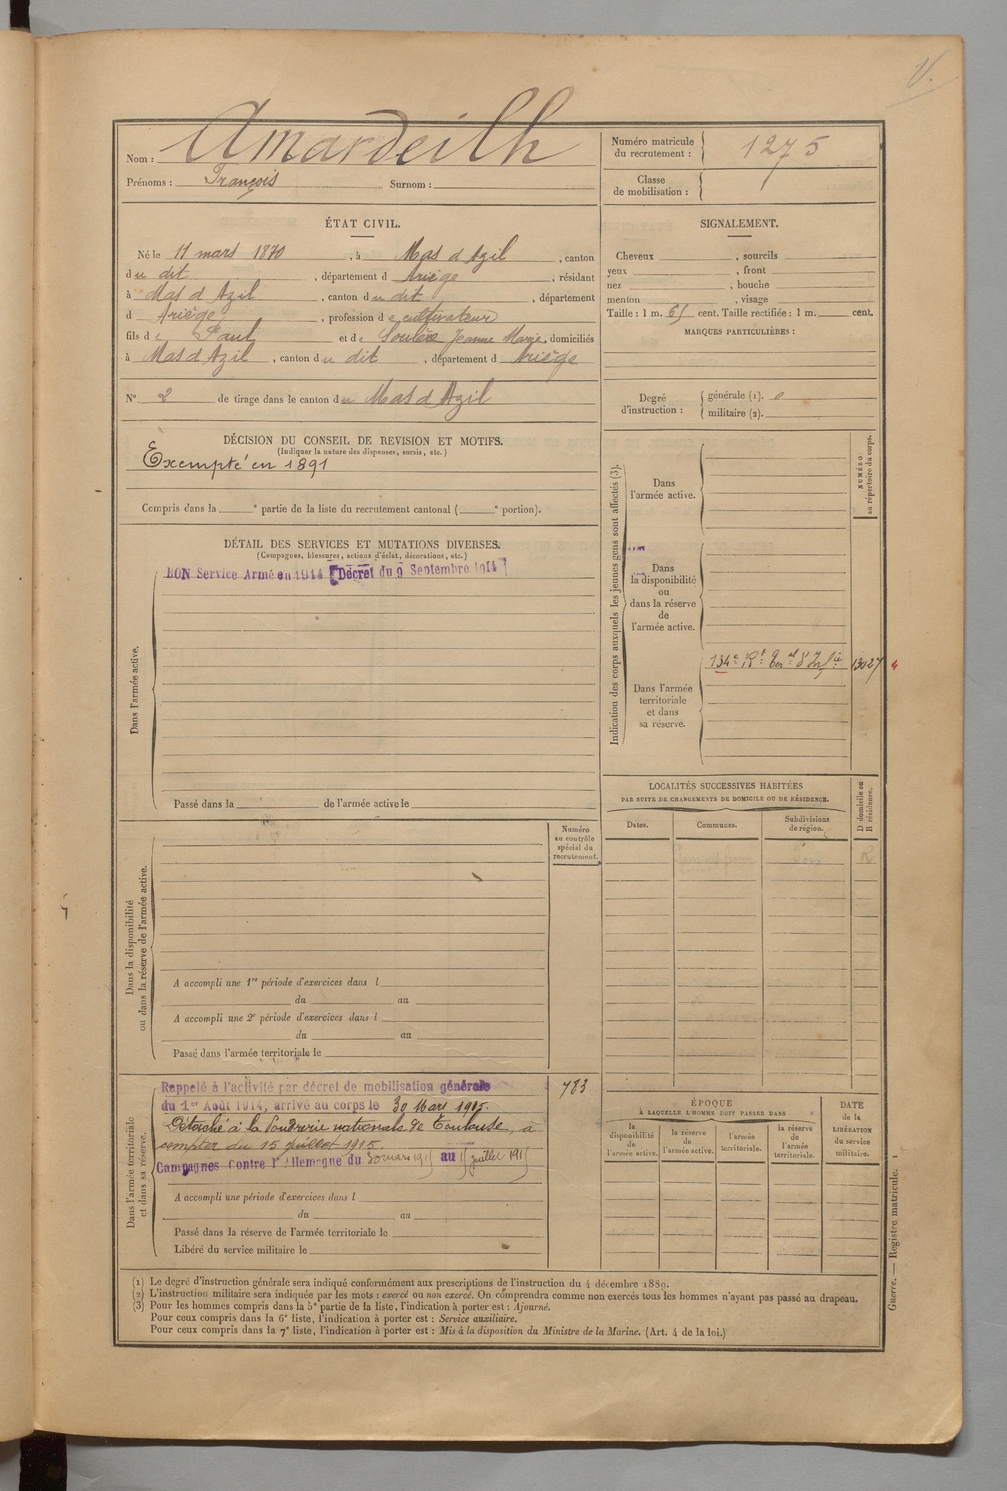 V.
Nom : Amardeilh
Prénoms : François Surnom :
Numéro matricule du recrutement : 1275
Classe de mobilisation :
ÉTAT CIVIL.
Né le 11 mars 1870, à Mas d'Azil, canton
du dit, département d Ariège, résidant
à Mas d'Azil, canton du dit, département
d Ariège, profession de cultivateur
fils de Paul et de Jeanne Marie, domiciliés
à Mas d'Azil, canton du dit, département d Ariège
N° 2 de tirage dans le canton du Mas d'Azil
SIGNALEMENT.
Cheveux , sourcils
yeux , front
nez , bouche
menton , visage
Taille : 1 m. 65 cent. Taille rectifiée : 1 m. cent.
MARQUES PARTICULIÈRES :
Degré d'instruction : générale (1). 0
militaire (2).
DÉCISION DU CONSEIL DE REVISION ET MOTIFS.
(Indiquer la nature des dispenses, sursis, etc.)
Exempté en 1891
Compris dans la e partie de la liste du recrutement cantonal ( e portion).
DÉTAIL DES SERVICES ET MUTATIONS DIVERSES.
(Campagnes, blessures, actions d'éclat, décorations, etc.)
BON Service Armé en 1914 [Décret du 9 Septembre 1914]
Dans l'armée active.
Passé dans la de l'armée active le
Indication des corps auxquels les jeunes gens sont affectés (3).
NUMÉRO au répertoire du corps.
Dans l'armée active.
Dans la disponibilité ou dans la réserve de l'armée active.
Dans l'armée territoriale et dans sa réserve.
134e Rt Terral d'Infie 13027
LOCALITÉS SUCCESSIVES HABITÉES
PAR SUITE DE CHANGEMENTS DE DOMICILE OU DE RÉSIDENCE.
Dates. Communes. Subdivisions de région.
D domicile ou R résidence.
R
Numéro au contrôle spécial du recrutement.
Dans la disponibilité ou dans la réserve de l'armée active.
A accompli une 1re période d'exercices dans l
du au
A accompli une 2e période d'exercices dans l
du au
Passé dans l'armée territoriale le
Dans l'armée territoriale et dans sa réserve.
Rappelé à l'activité par décret de mobilisation générale 783
du 1er Août 1914, arrivé au corps le 30 Mars 1915.
Détaché à la Poudrerie nationale de Toulouse, à
compter du 15 juillet 1915.
Campagnes contre l'Allemagne du 30 mars 1915 au 15 juillet 1915
A accompli une période d'exercices dans l
du au
Passé dans la réserve de l'armée territoriale le
Libéré du service militaire le
ÉPOQUE
À LAQUELLE L'HOMME DOIT PASSER DANS
la disponibilité de l'armée active. la réserve de l'armée active. l'armée territoriale. la réserve de l'armée territoriale.
DATE de la LIBÉRATION du service militaire.
Guerre. — Registre matricule. 1
(1) Le degré d'instruction générale sera indiqué conformément aux prescriptions de l'instruction du 4 décembre 1889.
(2) L'instruction militaire sera indiquée par les mots : exercé ou non exercé. On comprendra comme non exercés tous les hommes n'ayant pas passé au drapeau.
(3) Pour les hommes compris dans la 5e partie de la liste, l'indication à porter est : Ajourné.
Pour ceux compris dans la 6e liste, l'indication à porter est : Service auxiliaire.
Pour ceux compris dans la 7e liste, l'indication à porter est : Mis à la disposition du Ministre de la Marine. (Art. 4 de la loi.)